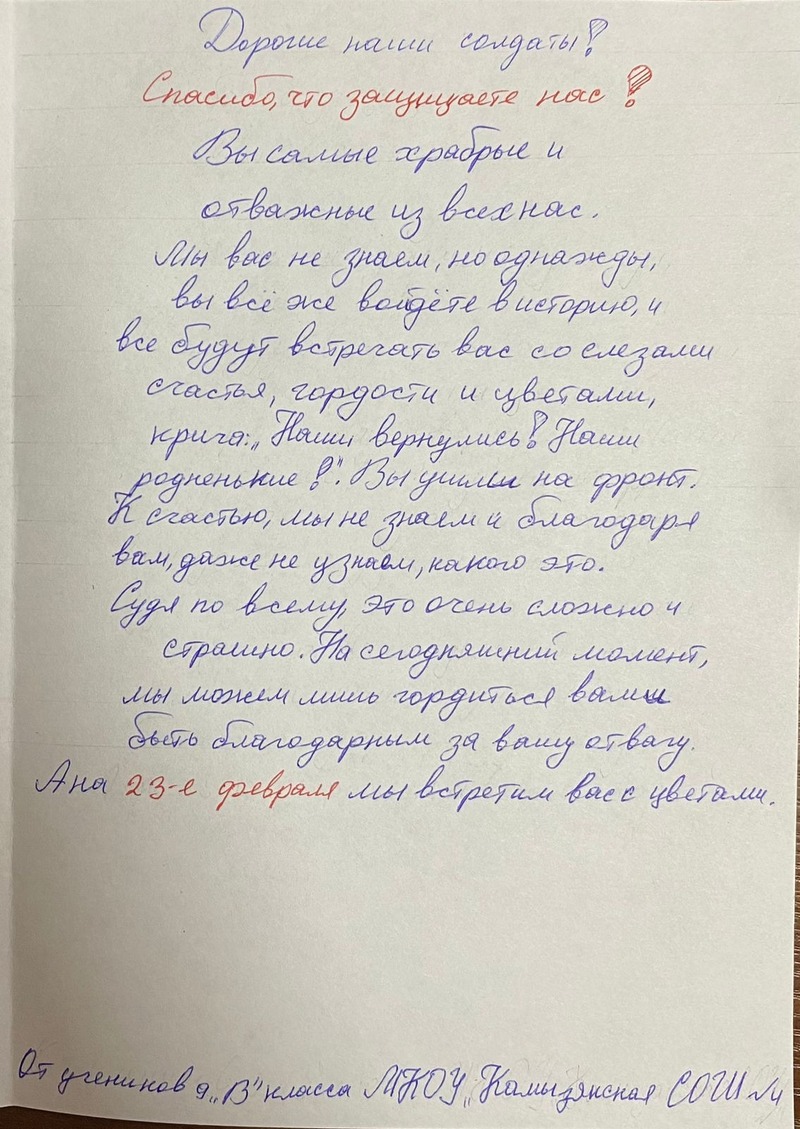 Дорогие наши солдаты!
Спасибо, что защищаете нас!
Вы самые храбрые и
отважные из всех нас.
Мы вас не знаем, но однажды,
вы всё же войдёте в историю, и
все будут встречать вас со слезами
счастья, гордости и цветами,
крича: „Наши вернулись! Наши
родненькие!". Вы ушли на фронт.
К счастью, мы не знаем и благодаря
вам, даже не узнаем, какого это.
Судя по всему, это очень сложно и
страшно. На сегодняшний момент,
мы можем лишь гордиться вами и
быть благодарным за вашу отвагу.
А на 23-е февраля мы встретим вас с цветами.
От учеников 9 „В" класса МКОУ „Камызякская СОШ №4